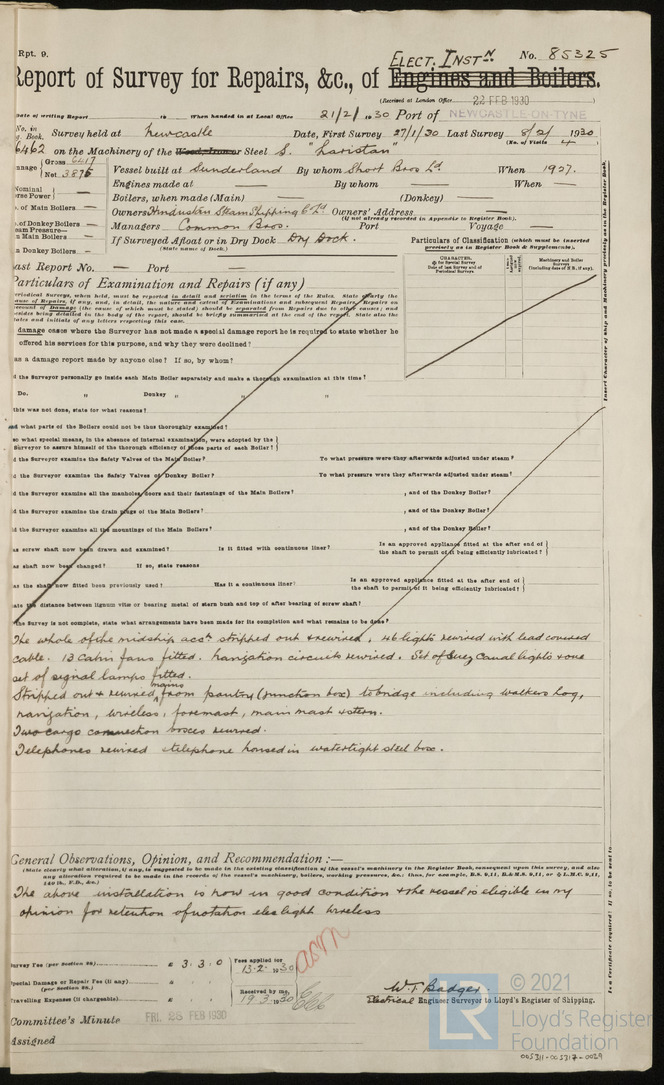 Rpt. 9.
ELECT. INST^N No. 85325
Report of Survey for Repairs, &c., of Engines and Boilers.
(Received at London Office 22 FEB 1930 )
Date of writing Report 19 When handed in at Local Office 21/2/1930 Port of NEWCASTLE-ON-TYNE
No. in Survey held at Newcastle Date, First Survey 27/1/30 Last Survey 8/2/1930
g. Book. (No. of Visits 4 )
6462 on the Machinery of the Wood, Iron or Steel S. "Laristan"
Gross 6417
nnage Net 3875 Vessel built at Sunderland By whom Short Bros Ld When 1927.
Nominal Engines made at — By whom — When —
rse Power Boilers, when made (Main) — (Donkey) —
. of Main Boilers — Owners Hindustan Steam Shipping Co Ld Owners' Address —
(if not already recorded in Appendix to Register Book).
. of Donkey Boilers — Managers Common Bros. Port Voyage —
eam Pressure—
n Main Boilers — If Surveyed Afloat or in Dry Dock. Dry Dock.
(State name of Dock.)
n Donkey Boilers —
Particulars of Classification (which must be inserted
precisely as in Register Book & Supplements).
CHARACTER,
for Special Survey
Date of last Survey and of
Periodical Surveys
Machinery and Boiler
Surveys
(Including dates of N.B., if any).
Last Report No. — Port —
Particulars of Examination and Repairs (if any)
damage cases where the Surveyor has not made a special damage report he is required to state whether he
offered his services for this purpose, and why they were declined?
as a damage report made by anyone else? If so, by whom?
d the Surveyor personally go inside each Main Boiler separately and make a thorough examination at this time?
Do. " Donkey " " "
this was not done, state for what reasons?
and what parts of the Boilers could not be thus thoroughly examined?
so what special means, in the absence of internal examination, were adopted by the
Surveyor to assure himself of the thorough efficiency of those parts of each Boiler?
d the Surveyor examine the Safety Valves of the Main Boiler? To what pressure were they afterwards adjusted under steam?
d the Surveyor examine the Safety Valves of Donkey Boiler? To what pressure were they afterwards adjusted under steam?
d the Surveyor examine all the manholes, doors and their fastenings of the Main Boilers? , and of the Donkey Boiler?
d the Surveyor examine the drain plugs of the Main Boilers? , and of the Donkey Boiler?
d the Surveyor examine all the mountings of the Main Boilers? , and of the Donkey Boiler?
as screw shaft now been drawn and examined? Is it fitted with continuous liner? Is an approved appliance fitted at the after end of
the shaft to permit of it being efficiently lubricated?
as shaft now been changed? If so, state reasons
as the shaft now fitted been previously used? Has it a continuous liner? Is an approved appliance fitted at the after end of
the shaft to permit of it being efficiently lubricated?
ate the distance between lignum vitæ or bearing metal of stern bush and top of after bearing of screw shaft?
the Survey is not complete, state what arrangements have been made for its completion and what remains to be done?
The whole of the midship accn stripped out & rewired, 46 lights rewired with lead covered
cable. 13 Cabin fans fitted. Navigation circuits rewired. Set of Suez Canal lights & one
set of signal lamps fitted.
Stripped out & rewired mains from pantry (junction box) to bridge including walkers Log,
navigation, wireless, foremast, main mast & stern.
Two cargo connection boxes rewired.
Telephones rewired & telephone housed in watertight steel box.
General Observations, Opinion, and Recommendation :—
(State clearly what alteration, if any, is suggested to be made in the existing classification of the vessel's machinery in the Register Book, consequent upon this survey, and also
any alteration required to be made in the records of the vessel's machinery, boilers, working pressures, &c.: thus, for example, B.S. 9,11, B.&M.S. 9,11, or L.M.C. 9,11,
140 lb., F.D., &c.)
The above installation is now in good condition & the vessel is eligible in my
opinion for retention of notation elec light wireless
Survey Fee (per Section 28) £ 3 . 3 . 0 Fees applied for
13.2.1930
Special Damage or Repair Fee (if any) £ : :
(per Section 28.) Received by me,
Travelling Expenses (if chargeable) £ : : 19.3.1930
W. T. Badger.
Electrical Engineer Surveyor to Lloyd's Register of Shipping.
Committee's Minute FRI. 28 FEB 1930
Assigned
Insert Character of Ship and Machinery precisely as in the Register Book.
Is a Certificate required? If so, to be sent to
© 2021
LR
Lloyd's Register
Foundation
005311-005317-0029